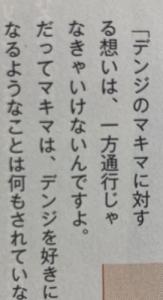 「デンジのマキマに対す
る想いは、一方通行じゃ
なきゃいけないんですよ。
だってマキマは、デンジを好きに
なるようなことは何もされていな